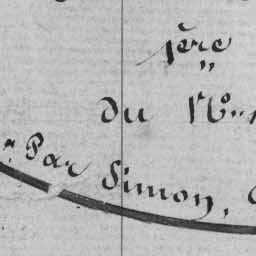 1ère
du
Par Simon,